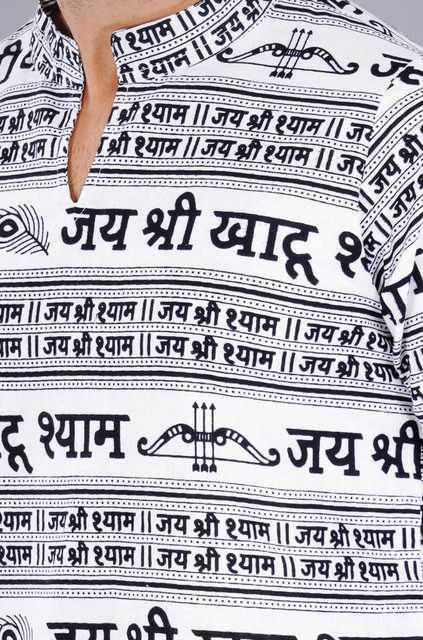 जय श्री श्याम
जय श्री श्याम
श्री श्याम || जय श्री श्याम || जय
जय श्री श्याम || जय श्री श्याम || जय श्री श्याम || जय
जय श्री खाटू
श्याम || जय श्री श्याम || जय श्री श्याम || जय श्री श्याम
श्याम || जय श्री श्याम || जय श्री श्याम || जय श्री श्याम
श्याम जय श्री
श्री श्याम || जय श्री श्याम || जय श्री श्याम || जय श्री श्याम
श्री श्याम || जय श्री श्याम || जय श्री श्याम || जय श्री श्याम
जय श्री खाटू